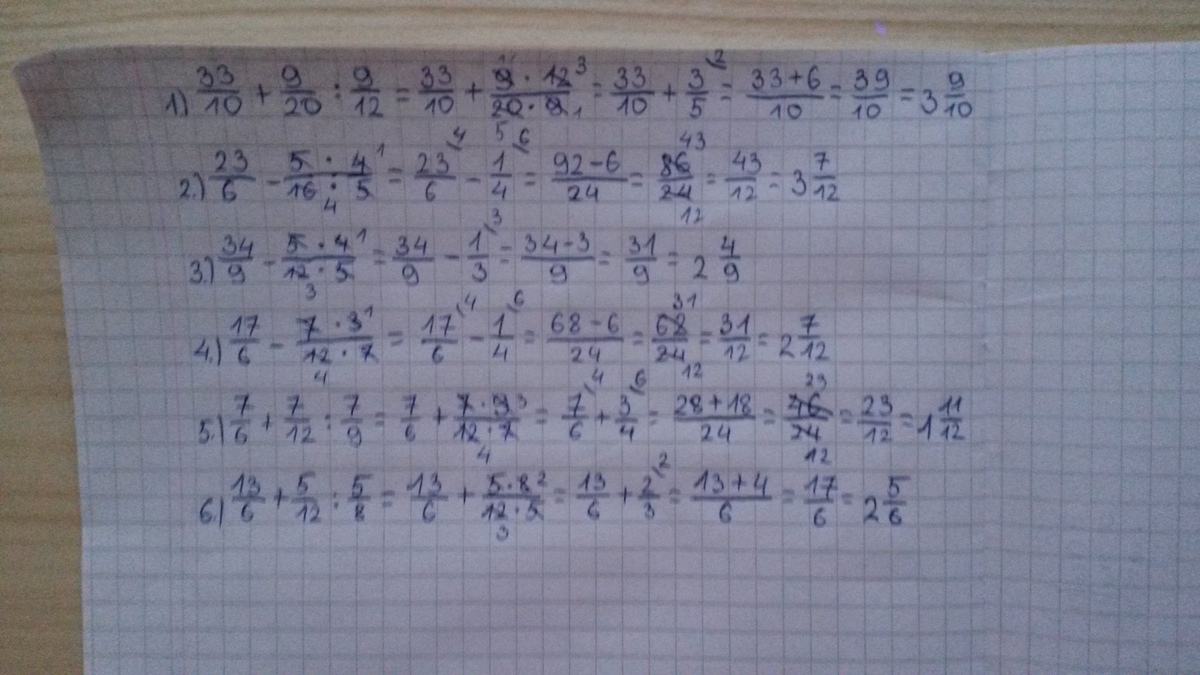 1) 33/10 + 9/20 : 9/12 = 33/10 + 9·12 3/20·9 1 5 = 33/10 + 3/5 \2 = 33+6/10 = 39/10 = 3 9/10
2.) 23/6 - 5·4 1/16:5 4 = 23/6 \4 - 1/4 \6 = 92-6/24 = 86 43/24 12 = 43/12 = 3 7/12
3.) 34/9 - 5·4 1/12·5 3 = 34/9 - 1/3 \3 = 34-3/9 = 31/9 = 2 4/9
4.) 17/6 - 7·3 1/12·7 4 = 17/6 \4 - 1/4 \6 = 68-6/24 = 68 31/24 12 = 31/12 = 2 7/12
5.) 7/6 + 7/12 : 7/9 = 7/6 + 7·9 3/12·7 4 = 7/6 \4 + 3/4 \6 = 28+18/24 = 46 23/24 12 = 23/12 = 1 11/12
6.) 13/6 + 5/12 : 5/8 = 13/6 + 5·8 2/12·5 3 = 13/6 + 2/3 \2 = 13+4/6 = 17/6 = 2 5/6